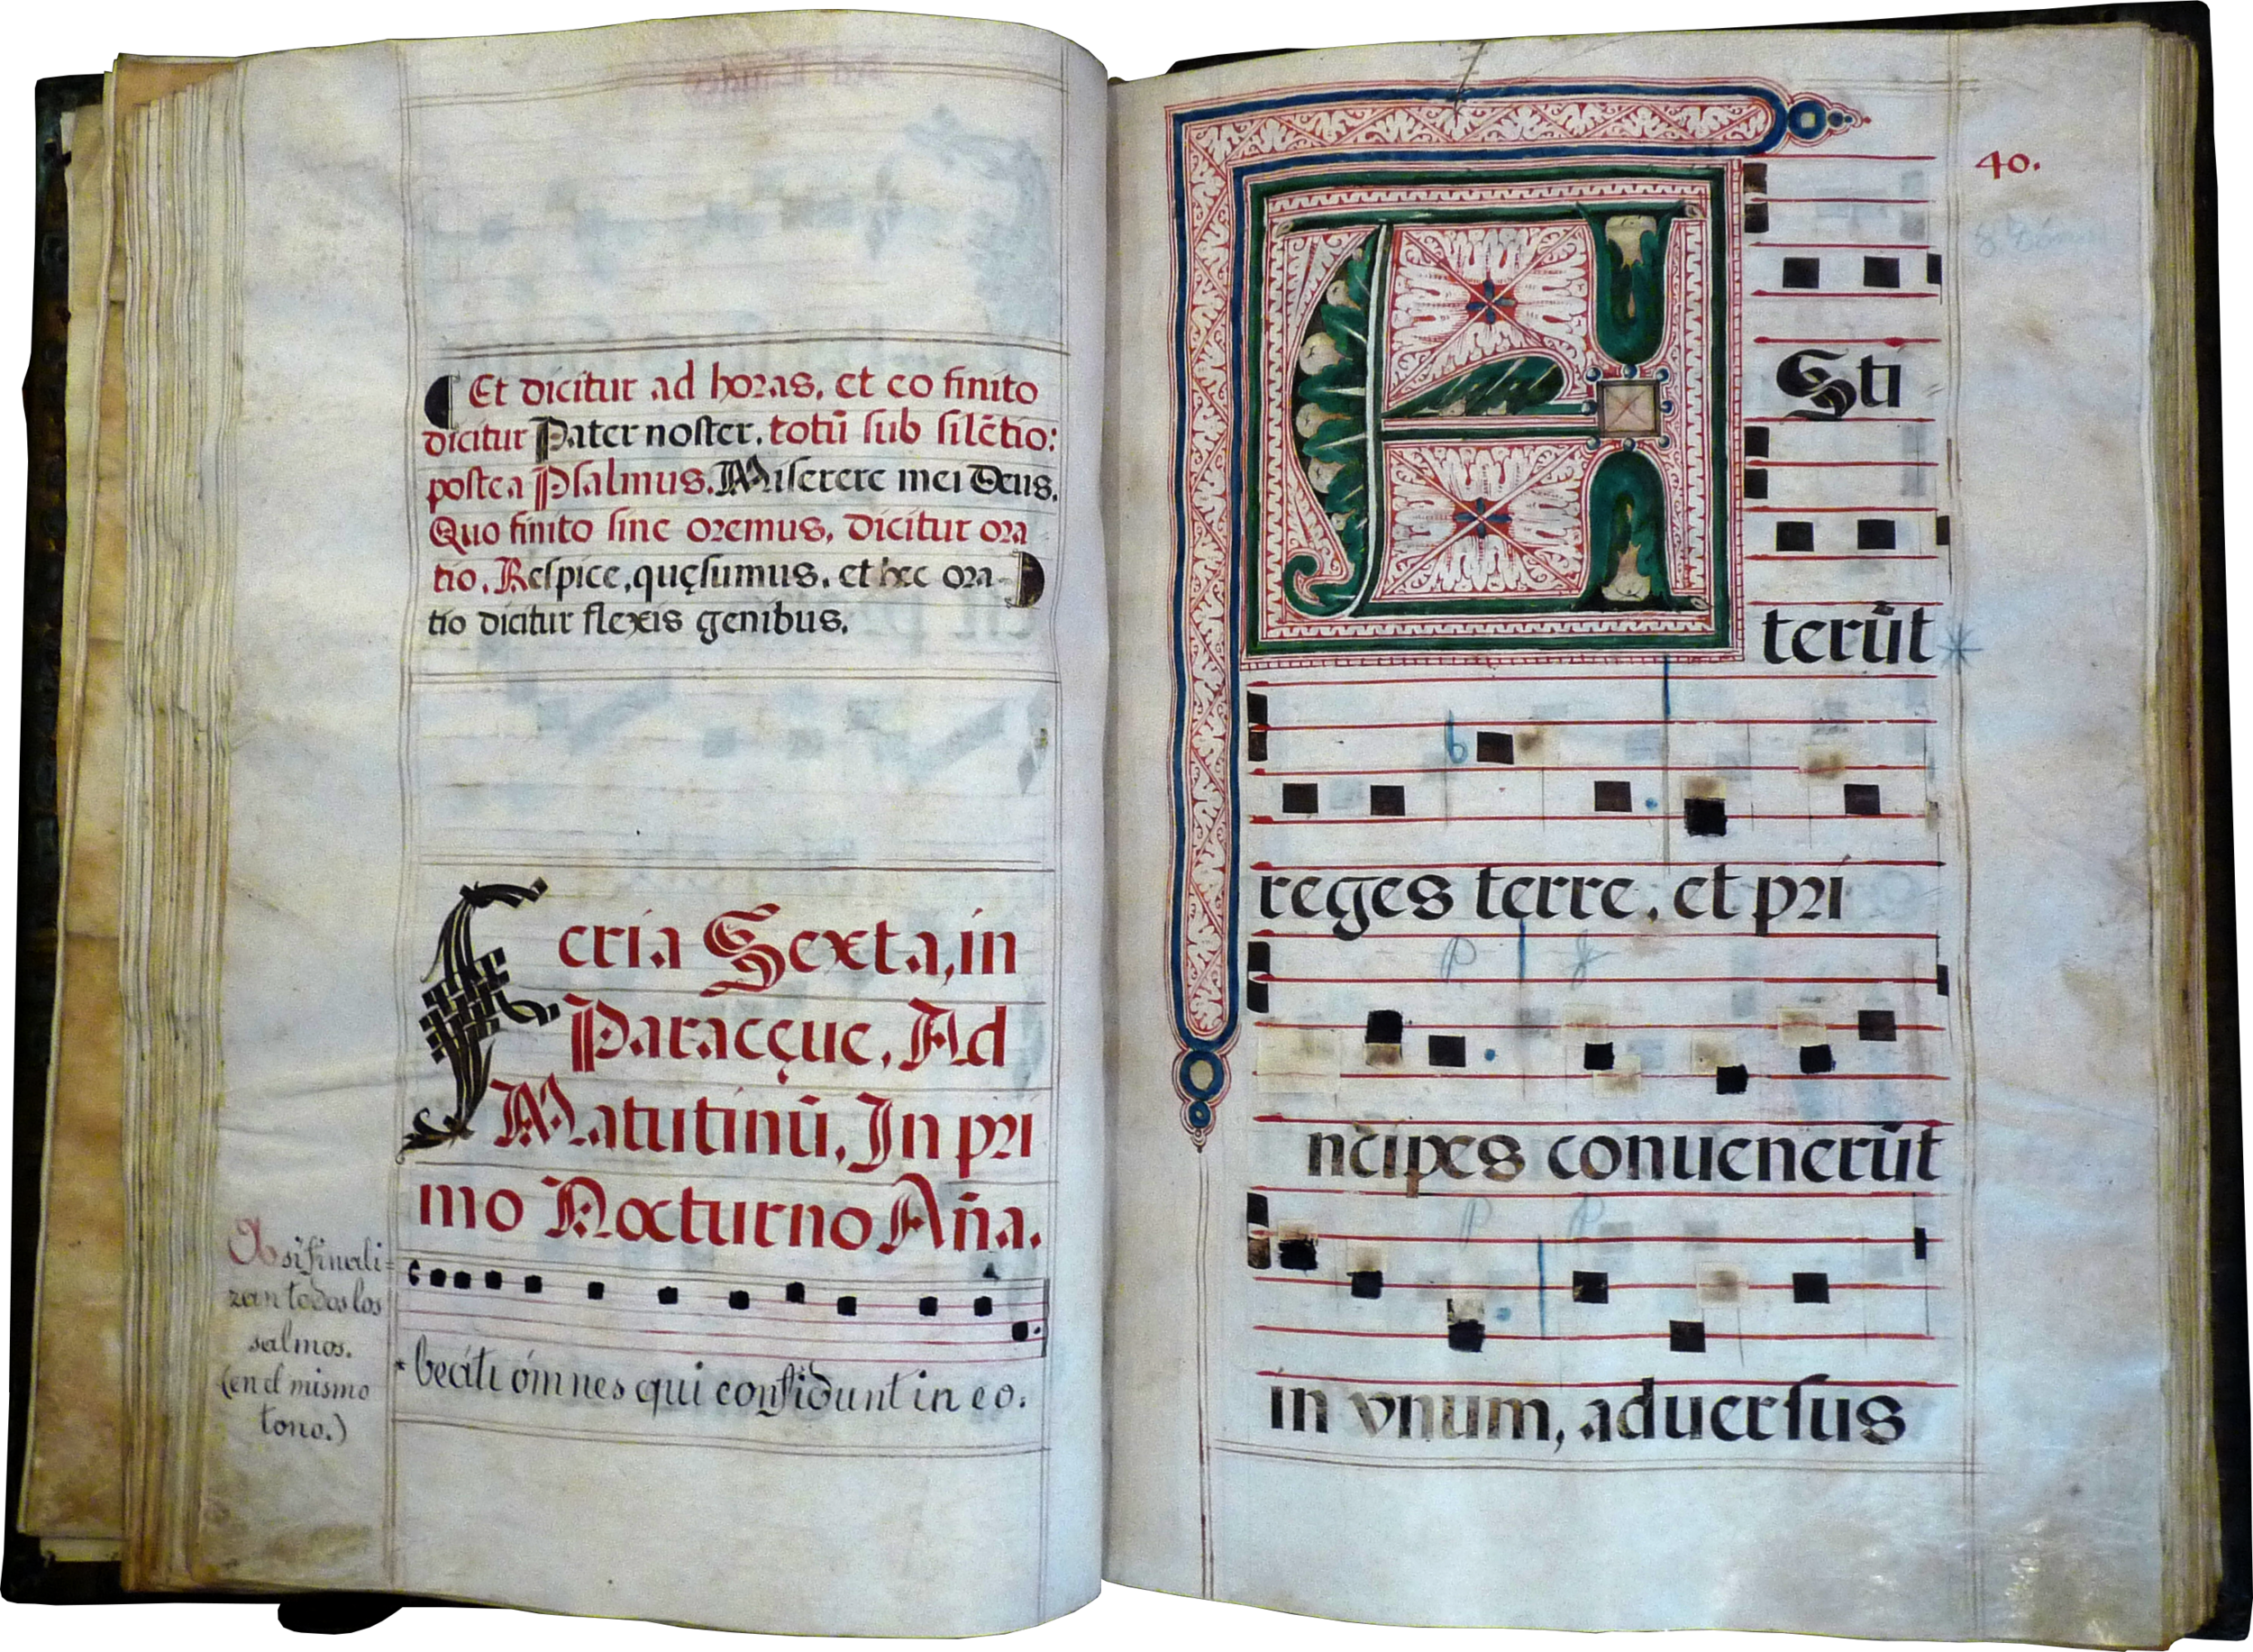 Et dicitur ad horas, et eo finito
dicitur Pater noster, totũ sub silẽtio:
postea Psalmus. Miserere mei Deus.
Quo finito sine oremus, dicitur ora
tio, Respice, quęsumus, et hec ora-
tio dicitur flexis genibus.
Feria Sexta, in
Parasceue, Ad
Matutinũ, In pri
mo Nocturno Añа.
si finali=
zan todos los
salmos.
(en el mismo
tono.)
* beáti ómnes qui confidunt in eo.
40.
ESti
terũt *
reges terre, et pri
ncipes conuenerũt
in vnum, aduersus